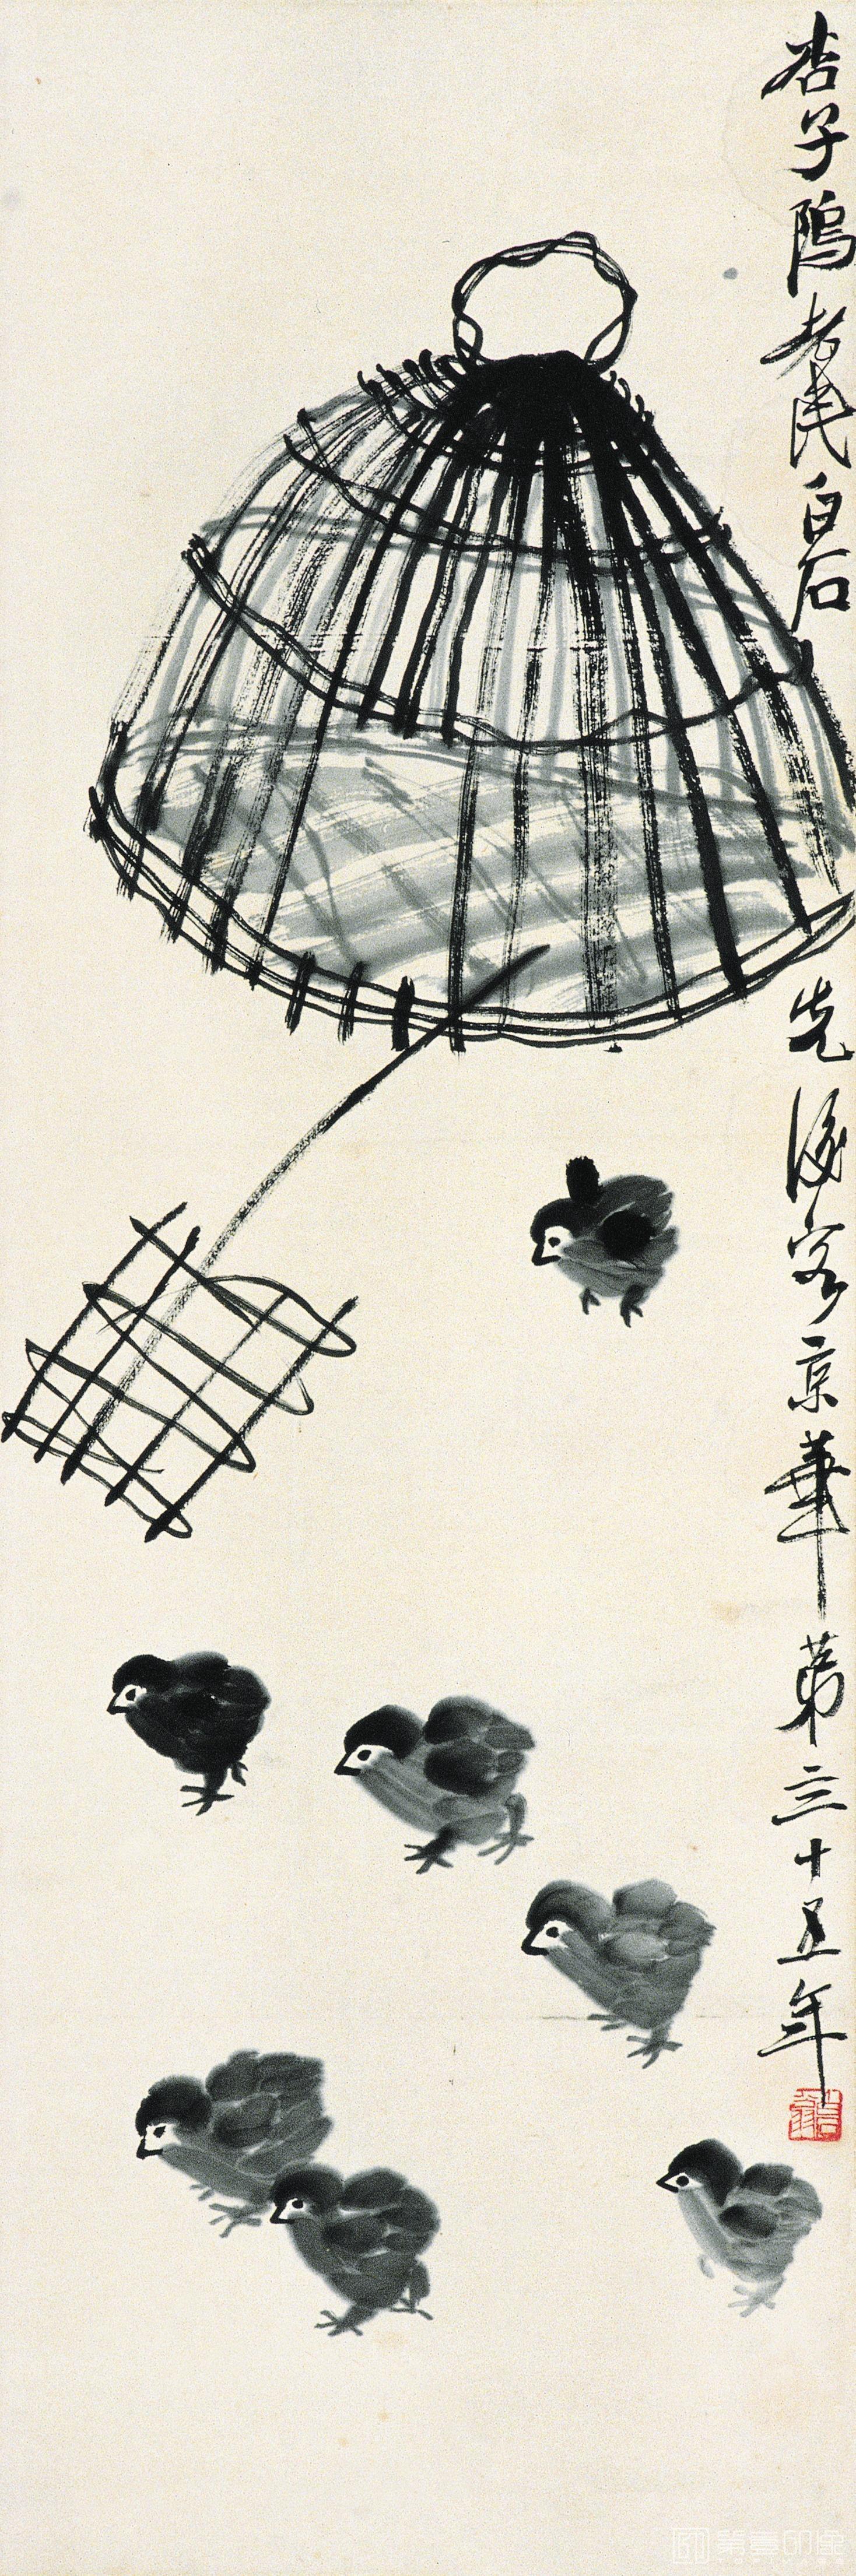 杏子隝老民白石
先後客京華第三十五年